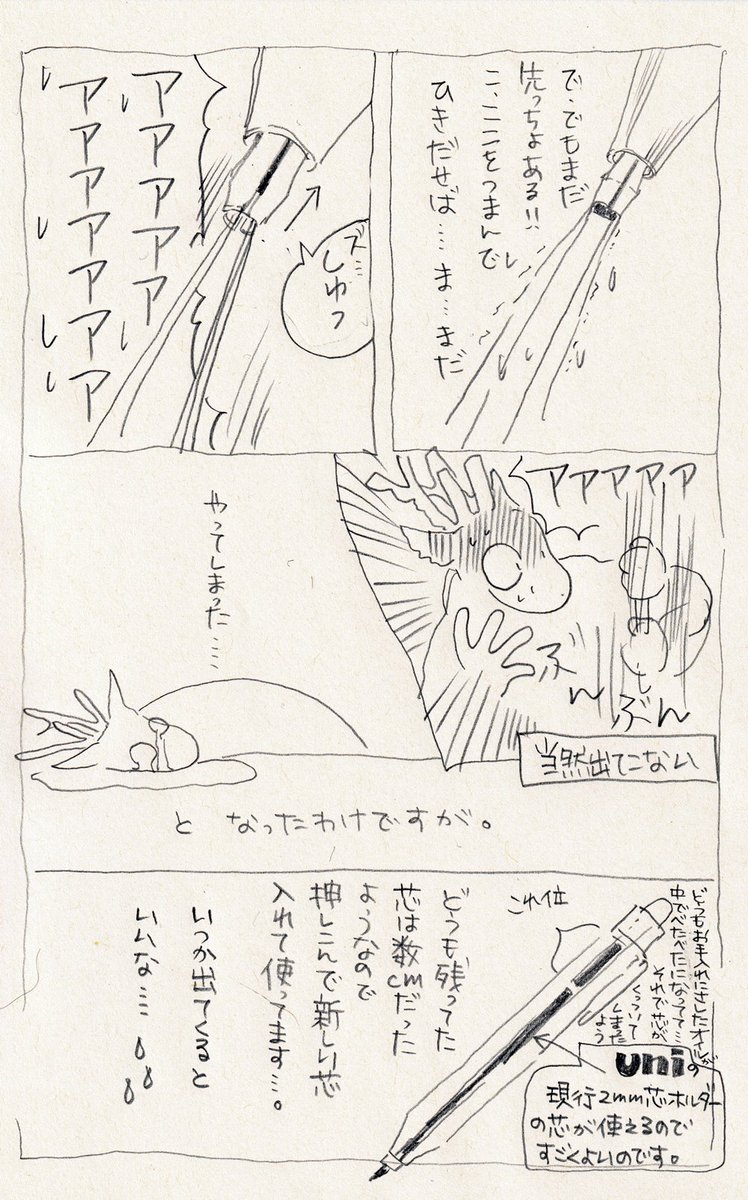 で、でもまだ
先っちょある!!
こ、ここをつまんで
ひきだせば……ま…まだ
ズ…
しゅっ
アアアアアア
アアアアアアア
アァァァァ
ぶんぶん
当然出てこない
やってしまった……
と なったわけですが。
どうもお手入れにさしたオイルが
中でべたべたになってて…
それで芯が
くっついて
しまった
よう
これ位
uniの
現行2mm芯ホルダー
の芯が使えるので
すごくよいのです。
どうも残ってた
芯は数cmだった
ようなので
押しこんで新しい芯
入れて使ってます…。
いつか出てくると
いいな……